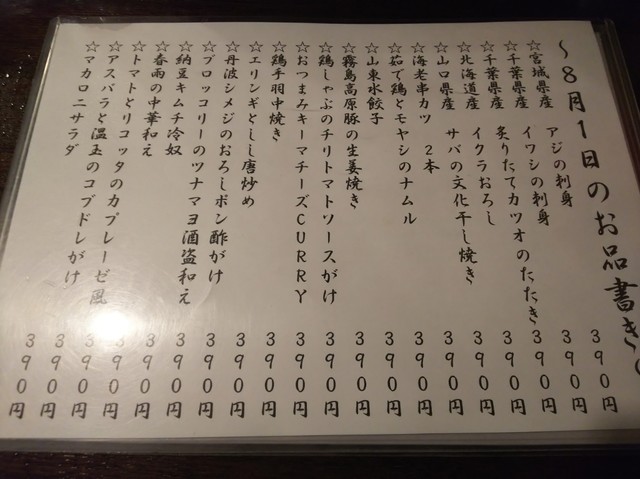 ～8月1日のお品書き～
☆宮城県産 アジの刺身 390円
☆千葉県産 イワシの刺身 390円
☆千葉県産 炙りたてカツオのたたき 390円
☆北海道産 イクラおろし 390円
☆山口県産 サバの文化干し焼き 390円
☆海老串カツ 2本 390円
☆茹で鶏とモヤシのナムル 390円
☆山東水餃子 390円
☆霧島高原豚の生姜焼き 390円
☆鶏しゃぶのチリトマトソースがけ 390円
☆おつまみキーマチーズCURRY 390円
☆鶏手羽中焼き 390円
☆エリンギとしし唐炒め 390円
☆丹波シメジのおろしポン酢がけ 390円
☆ブロッコリーのツナマヨ酒盗和え 390円
☆納豆キムチ冷奴 390円
☆春雨の中華和え 390円
☆トマトとリコッタのカプレーゼ風 390円
☆アスパラと温玉のコブドレがけ 390円
☆マカロニサラダ 390円